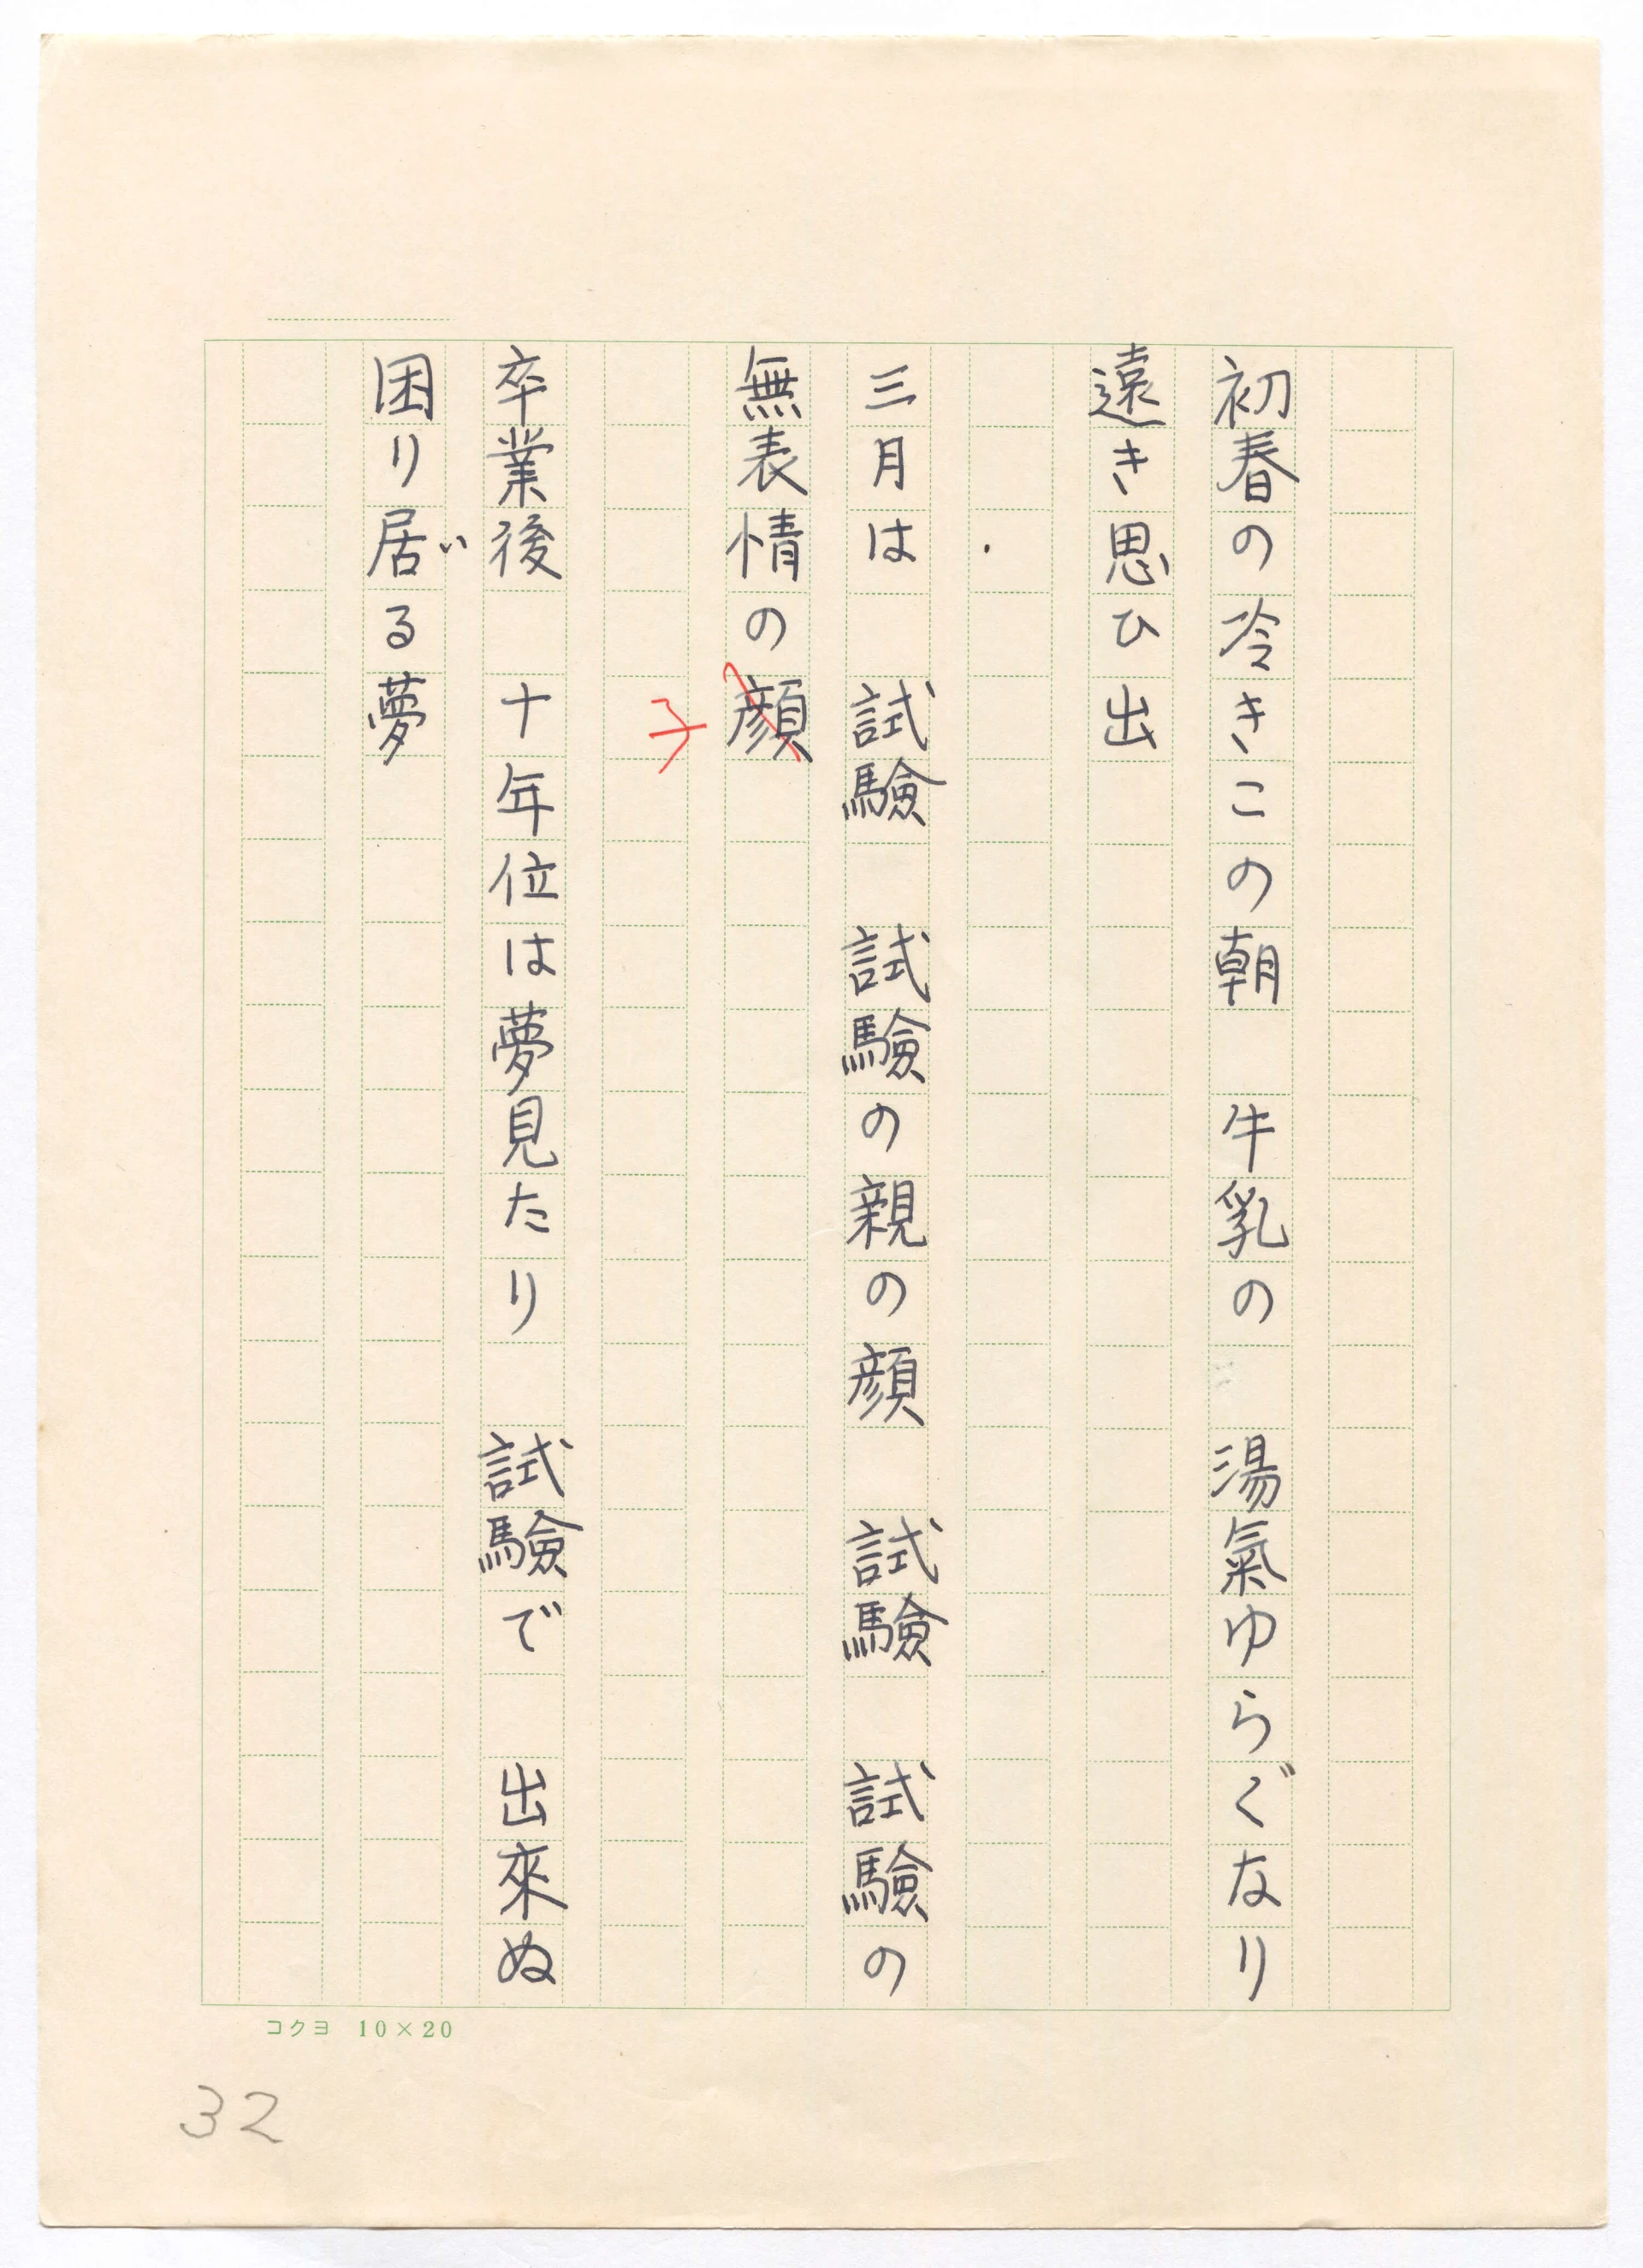 初春の冷きこの朝　牛乳の　湯氣ゆらぐなり
遠き思ひ出
三月は　試験　試験の親の顔　試験　試験の
無表情の顔
子
卒業後　十年位は夢見たり　試験で　出來ぬ
困り居る夢
い
コクヨ 10×20
32